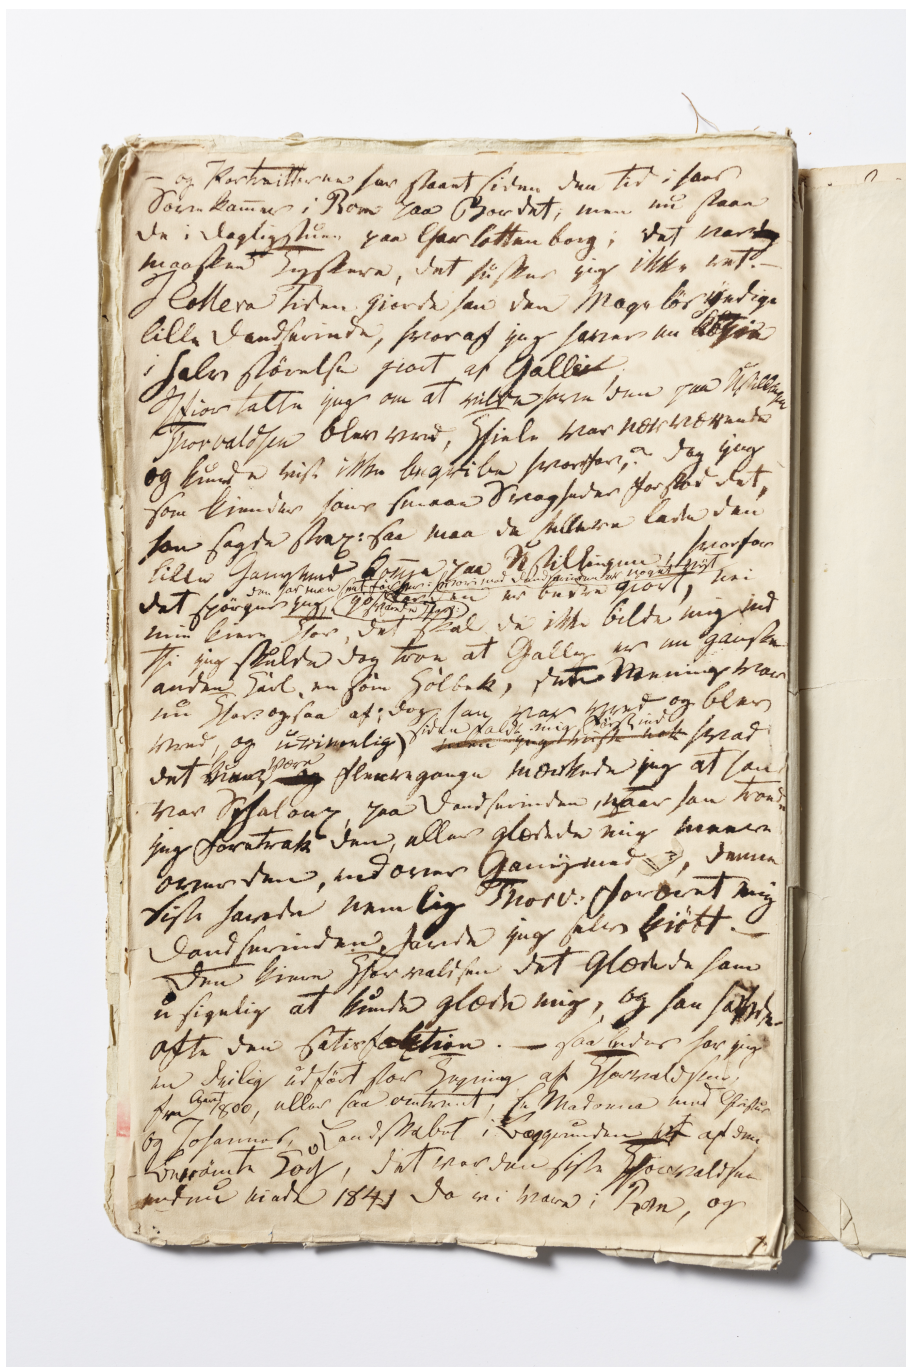 — og Portraitterne har staaet siden den tid i hans
Sovekammer i Rom paa Bordet, men nu staae
de i dagligstuen paa Charlottenborg; det var
maaskee Tydskere, det husker jeg ikke ret. —
I den tiden giorde han den Mageløs yndige
lille Dandserinde, hvoraf jeg haver en Copie
i halv størrelse giort af Galli
Ifior talte jeg om at ville have den paa Udstillingen
Thorvaldsen blev vred, Thiele var nærværende
og kunde vist ikke begribe hvorfor, dog jeg
som kiender hans smaae Svagheder forstod det,
han sagde strax: saa maa du hellere lade den
lille Ganymed komme paa Udstillingen, hvorfor
det spørger jeg, den er bedre giort, nei
min kiere Thor, det skal du ikke bilde mig ind
thi jeg skulde dog troe at Galli er en ganske
anden Karl, en som Holbek, det Mening var
nu Thor: ogsaa af; dog han var vred og blev
vred, og urimelig, siden faldt mig først ind hvad
det kunde være flere gange mærkede jeg at han
var Schaloux paa Dandserinden, naar han troede
jeg foretrak den, eller glædede mig meere
over den, end over Ganymed, denne
siste havde nemlig Thorv: foræret mig
Dandserinden, havde jeg selv kiøbt. —
Den kiere Thorvaldsen det glædede ham
usigelig at kunde glæde mig, og han havde
ofte den satisfaktion. — saaledes har jeg
en deilig udført stor Tegning af Thorvaldsen,
fra 1800, eller saa omtrent, En Madonna med Christus
og Johannes, Landskabet i Baggrunden er af den
berømte Koch, det var den siste Thorvaldsen
endnu eiede 1841 da vi vare i Rom, og